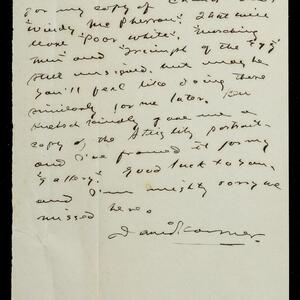 for my copy of
"Windy McPherson". That will
"Poor White", "Marching
Men" and "Triumph of the Egg"
still unsigned, but maybe
you'll feel like doing these
similarly for me later. Ben
kindly gave me a
copy of the portrait
and I've framed it for my
"gallery". Good luck to you,
and I'm mighty sorry we
missed here.